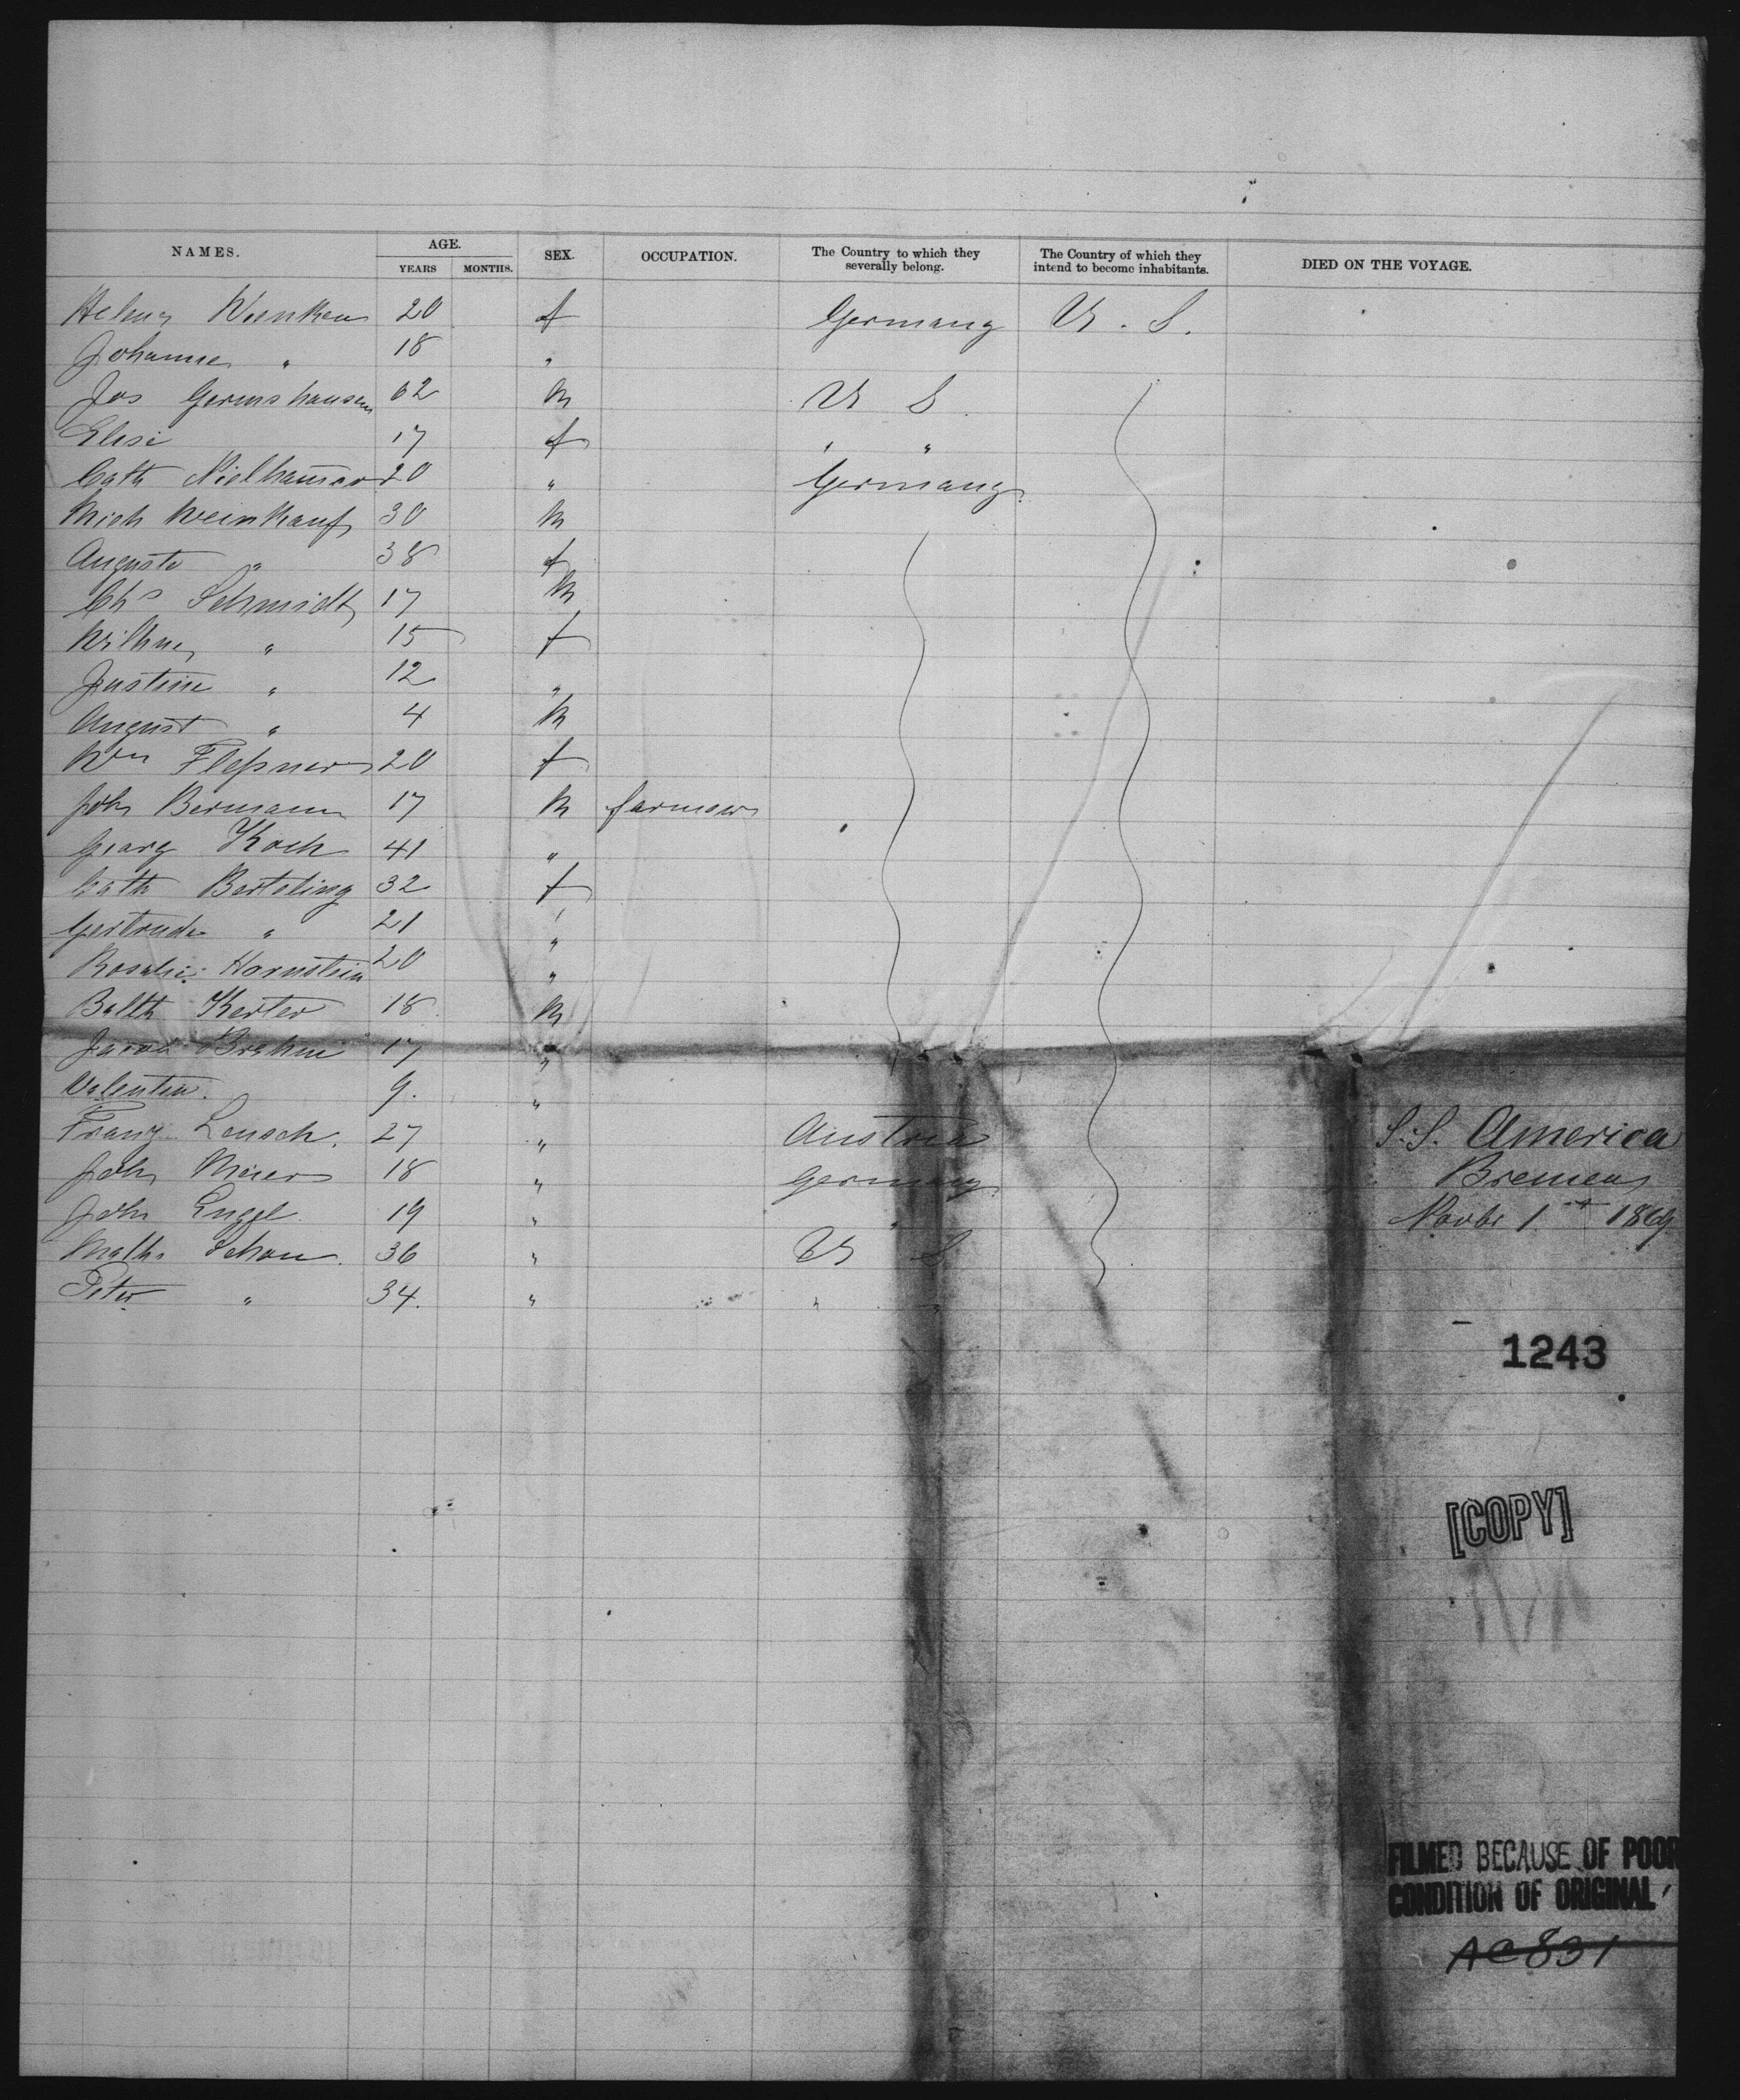 NAMES. AGE. YEARS MONTHS. SEX. OCCUPATION. The Country to which they severally belong. The Country of which they intend to become inhabitants. DIED ON THE VOYAGE.
20 f Germany U. S.
Johanne " 18 "
Jos Germshausen 62 m U S
Elise 17 f " "
Cath 20 " Germany
Mich Weinkauf 30 m
Auguste " 38 f
Chs Schmidt 17 m
Wilhne " 15 f
Justine " 12 "
August " 4 m
Wm Fleßner 20 f
Joh Bermann 17 m farmer
Georg Koch 41 "
Cath Berteling 32 f
Gertrude " 21 "
Rosalie Hornstein 20 "
Balth Kester 18 m
Jacob Brehm 17 "
Valentin 9. "
Franz Lensch. 27 " Austria
Joh Meier 18 " Germany
Joh Engel 19 "
Math. Schon. 36 " U S
Peter " 34. " " "
S.S. America
Bremen
Novbr 1st 1869
1243
[COPY]
FILMED BECAUSE OF POOR
CONDITION OF ORIGINAL
AC 831